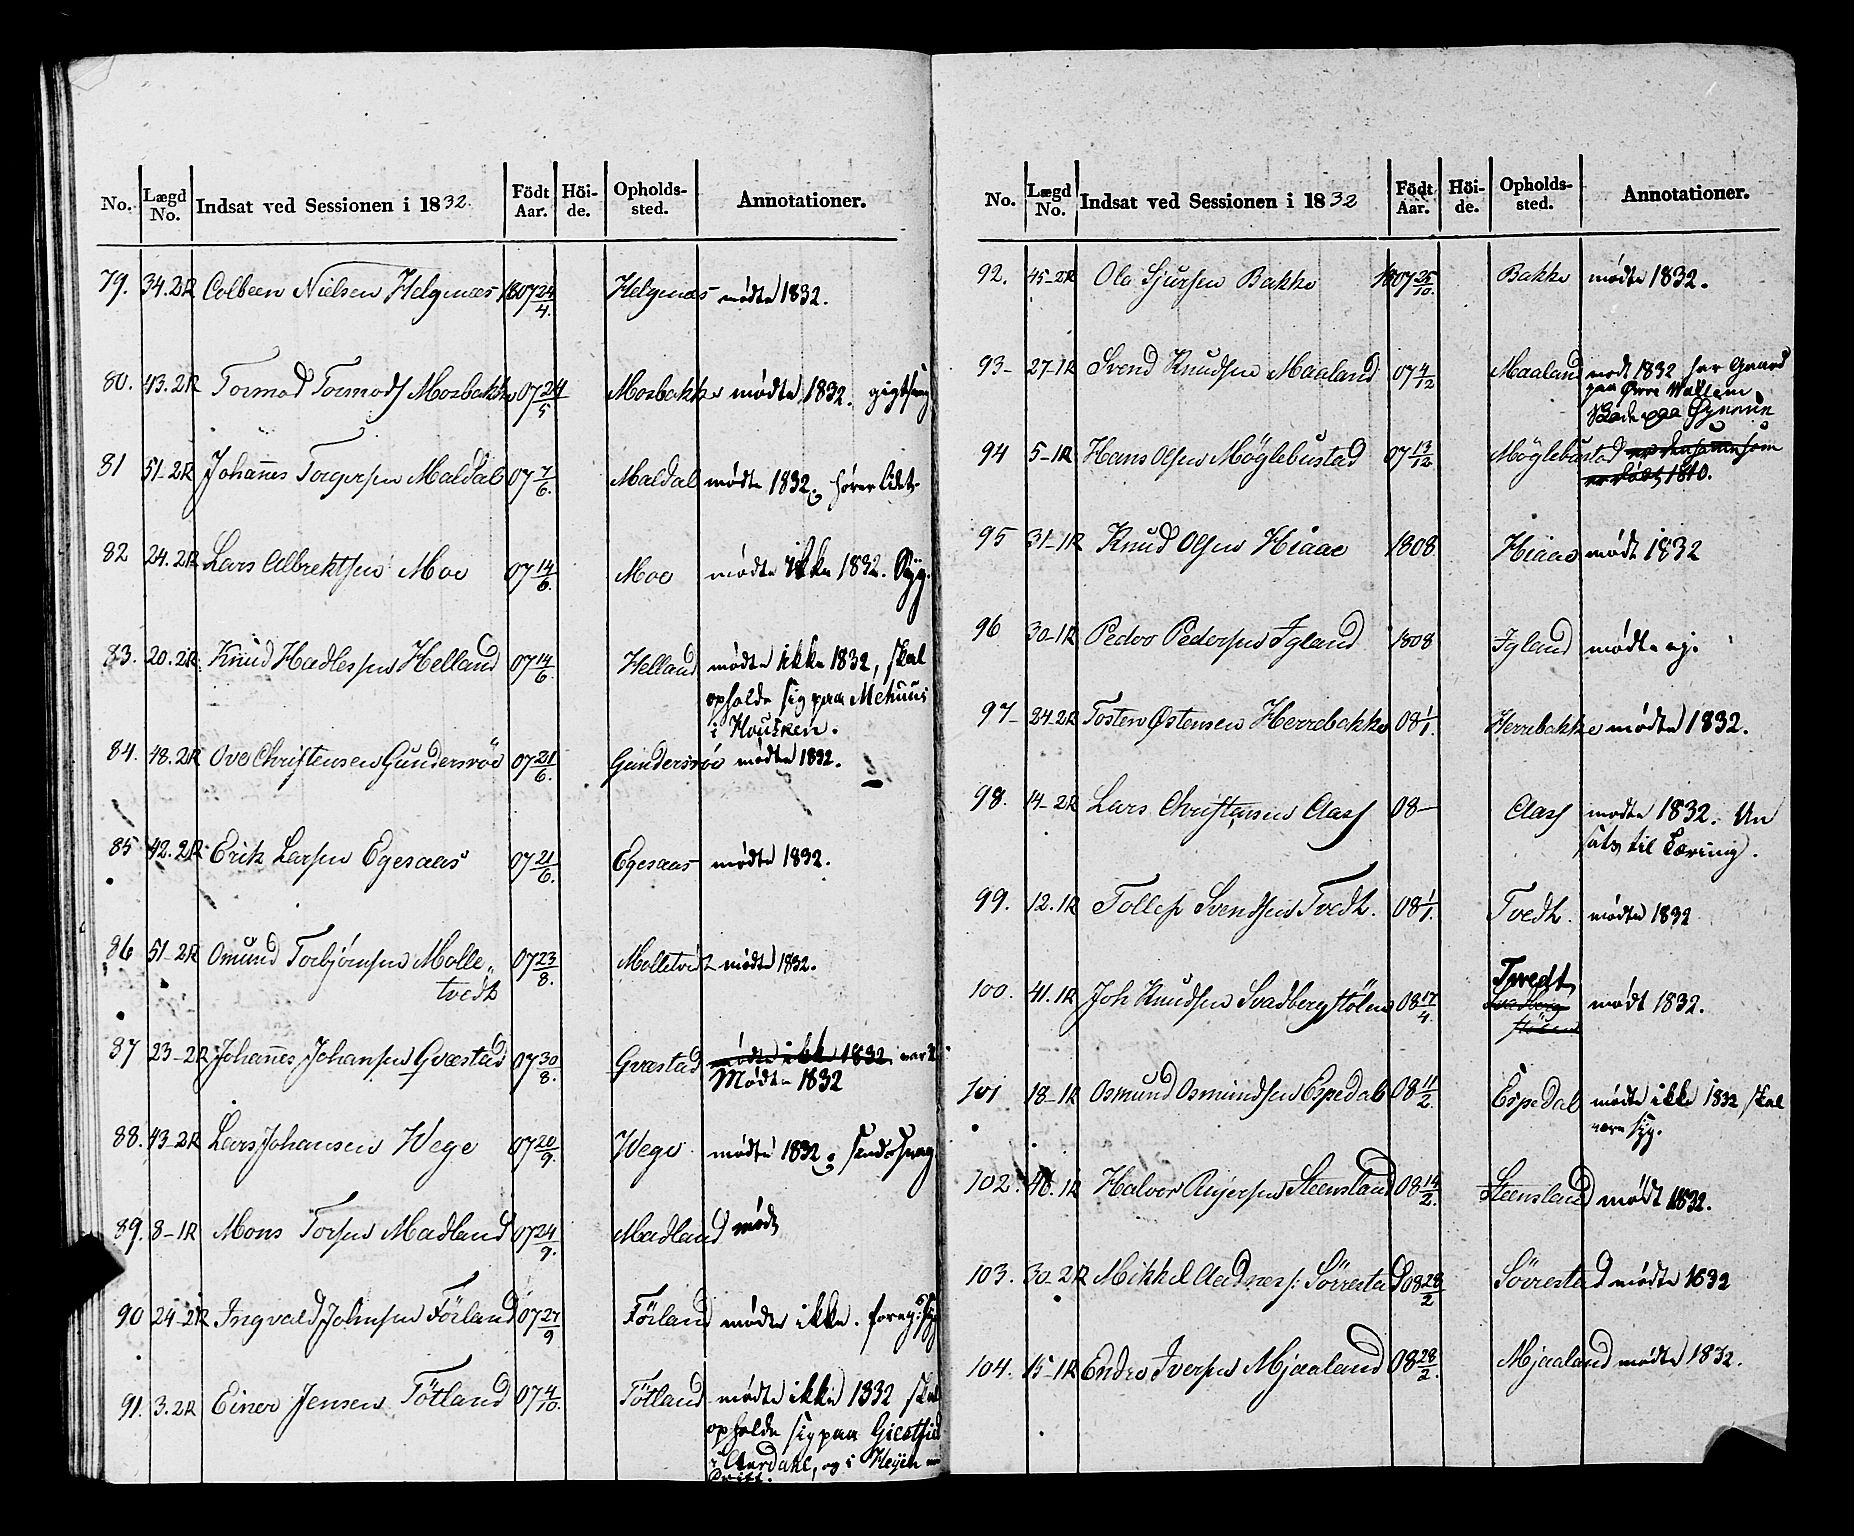 No. Lægd No. Indsat ved Sessionen i 1832. Födt Aar. Höide. Opholdssted. Annotationer.
79. 34.2R Colbeen Nielsen Helgenæs 1807 24/4. Helgenæs mødte 1832.
80. 43.2R Tormod Tormods Mosbakke 07 24/5 Mosbakke mødte 1832. gigtsvag
81 51-2R Johannes Torgersen Maldal 07 7/6. Maldal mødte 1832. hører lidet
82 24.2R Lars Albrektsen Moe 07 14/6. Moe mødte ikke 1832. Syg.
83. 20.2R Knud Hadlesen Helland 07 14/6 Helland mødte ikke 1832, skal
opholde sig paa Mehuus
i Housken.
84. 48.2R Ove Christensen Gundersröe 07 21/6. Gundersröe mødte 1832.
85 42.2R Erik Larsen Egesaas 07 21/6. Egesaas mødte 1832.
86 51-2R Omund Torbjörnsen Molle-
tvedt 07 23/8. Molletvedt mødte 1832.
87 23-2R Johannes Johansen Gvæstad 07 30/8. Gvæstad mødte ikke 1832.
Mødte 1832
88. 43-2R Lars Johansen Wege 07 20/9. Wege mødte 1832.
89. 8-1R Mons Torsen Madland 07 24/9. Madland mødt
90 24-2R Ingvald Johnsen Förland 07 27/9 Förland mødte ikke. foreg: syg
91. 3.2R Einer Jensen Tötland 07 4/10. Tötland mødte ikke 1832 skal
opholde sig paa
i og i
No. Lægd No. Indsat ved Sessionen i 1832 Födt Aar. Höide. Opholdssted. Annotationer.
92. 45-2R Ole Sjursen Bakke 1807 25/10. Bakke mødte 1832.
93- 27-1R Svend Knudsen Maaland 07 4/12 Maaland mødt 1832 har Gaard
paa Øvre
paa
94 5-1R Hans Olsen Möglebustad 07 13/12 Möglebustad er densamme som
er født 1810.
95 31-1R Knud Olsen Hiaae 1808 Hiaae mødt 1832
96 30-1R Peder Pedersen Igland 1808 Igland mødte ej.
97- 24-2R Tosten Østensen Herrebakke 08 1/1. Herrebakke mødte 1832.
98. 14-2R Lars Christensen Aass 08- Aass mødte 1832. Un
sats til Læring.
99. 12.1R Tollef Svendsen Tvedt. 08 1/1. Tvedt. mødte 1832
100. 41.1R Joh Knudsen Svadbergstölen 08 17/4. Tvedt Svadberg
stölen mødt 1832.
101 18-1R Osmund Osmundsen Espedal 08 11/2. Espedal mødte ikke 1832 skal
være syg.
102. 46.1R Halvor Steensland 08 14/2. Steensland mødt 1832.
103. 30.2R Mikkel Aadnes: Sörrestad 08 28/2 Sörrestad mødte 1832
104. 15-1R Endre Iversen Mjaaland 08 28/2. Mjaaland mødte 1832.